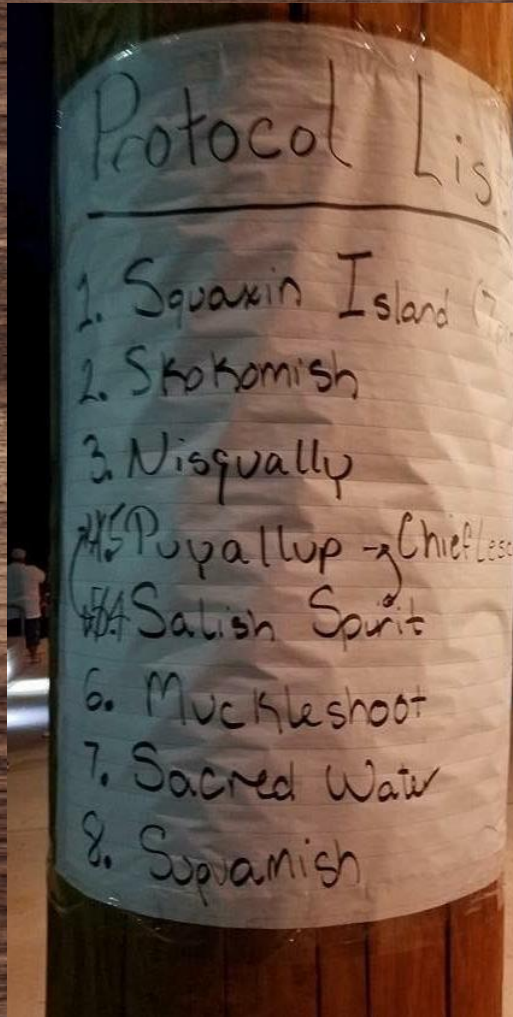 Protocol Lis
1. Squaxin Island (7
2. Skokomish
3. Nisqually
5 Puyallup → Chief Lesc
4 Salish Spirit
6. Muckleshoot
7. Sacred Water
8. Suquamish